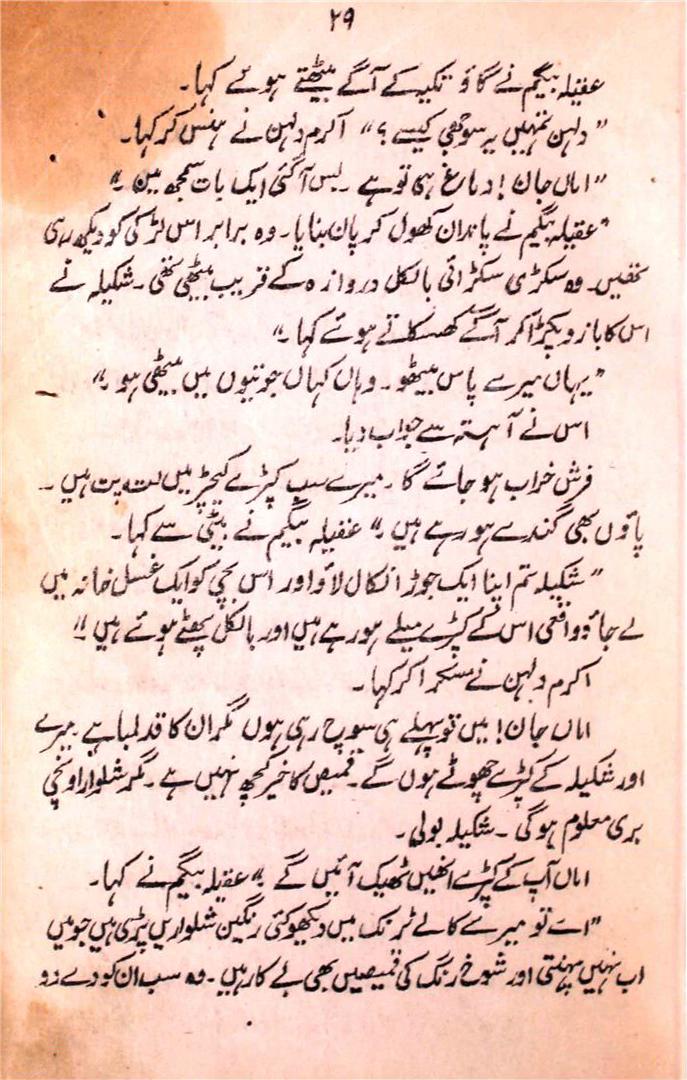 ۲۹
عقیلہ بیگم نے گاؤ تکیہ کے آگے بیٹھتے ہوئے کہا۔
”دلہن تمہیں یہ سوجھی کیسے؟“ اکرم دلہن نے ہنس کر کہا۔
”اماں جان! دماغ ہی تو ہے۔ بس آ گئی ایک بات سمجھ میں۔“
”عقیلہ بیگم نے پاندان کھول کر پان بنایا۔ وہ برابر اس لڑکی کو دیکھ رہی
تھیں۔ وہ سکڑی سکڑائی بالکل دروازہ کے قریب بیٹھی تھی۔ شکیلہ نے
اس کا بازو پکڑ کر آگے کھسکاتے ہوئے کہا۔“
”یہاں میرے پاس بیٹھو۔ وہاں کہاں جوتیوں میں بیٹھی ہو۔“
اس نے آہستہ سے جواب دیا۔
فرش خراب ہو جائے گا۔ میرے سب کپڑے کیچڑ میں لت پت ہیں۔
پاؤں بھی گندے ہو رہے ہیں۔“ عقیلہ بیگم نے بیٹی سے کہا۔
”شکیلہ تم اپنا ایک جوڑا نکال لاؤ اور اس بچی کو ایک غسل خانہ میں
لے جاؤ واقعی اس کے کپڑے میلے ہو رہے ہیں اور بالکل پھٹے ہوئے ہیں۔“
اکرم دلہن نے مسکرا کر کہا۔
اماں جان! میں تو پہلے ہی سوچ رہی ہوں مگر ان کا قد لمبا ہے میرے
اور شکیلہ کے کپڑے چھوٹے ہوں گے۔ قمیص کا خیر کچھ نہیں ہے۔ مگر شلوار اونچی
بری معلوم ہوگی۔ شکیلہ بولی۔
اماں آپ کے کپڑے انھیں ٹھیک آئیں گے۔“ عقیلہ بیگم نے کہا۔
”اے تو میرے کالے ٹرنک میں دیکھو کئی رنگین شلواریں پڑی ہیں جو میں
اب نہیں پہنتی اور شوخ رنگ کی قمیصیں بھی بے کار ہیں۔ وہ سب ان کو دے دو